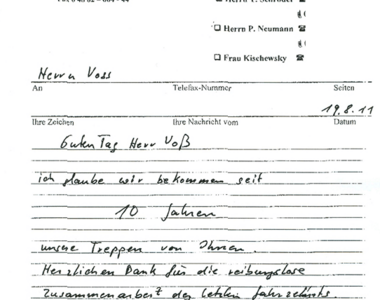 ☐ Herrn P. Neumann ☎
☐ Frau Kischewsky ☎
Herrn Voss
An Telefax-Nummer Seiten
19.8.11
Ihre Zeichen Ihre Nachricht vom Datum
Guten Tag Herr Voß
ich glaube wir bekommen seit
10 Jahren
unsere Treppen von Ihnen.
Herzlichen Dank für die reibungslose
Zusammenarbeit der letzten